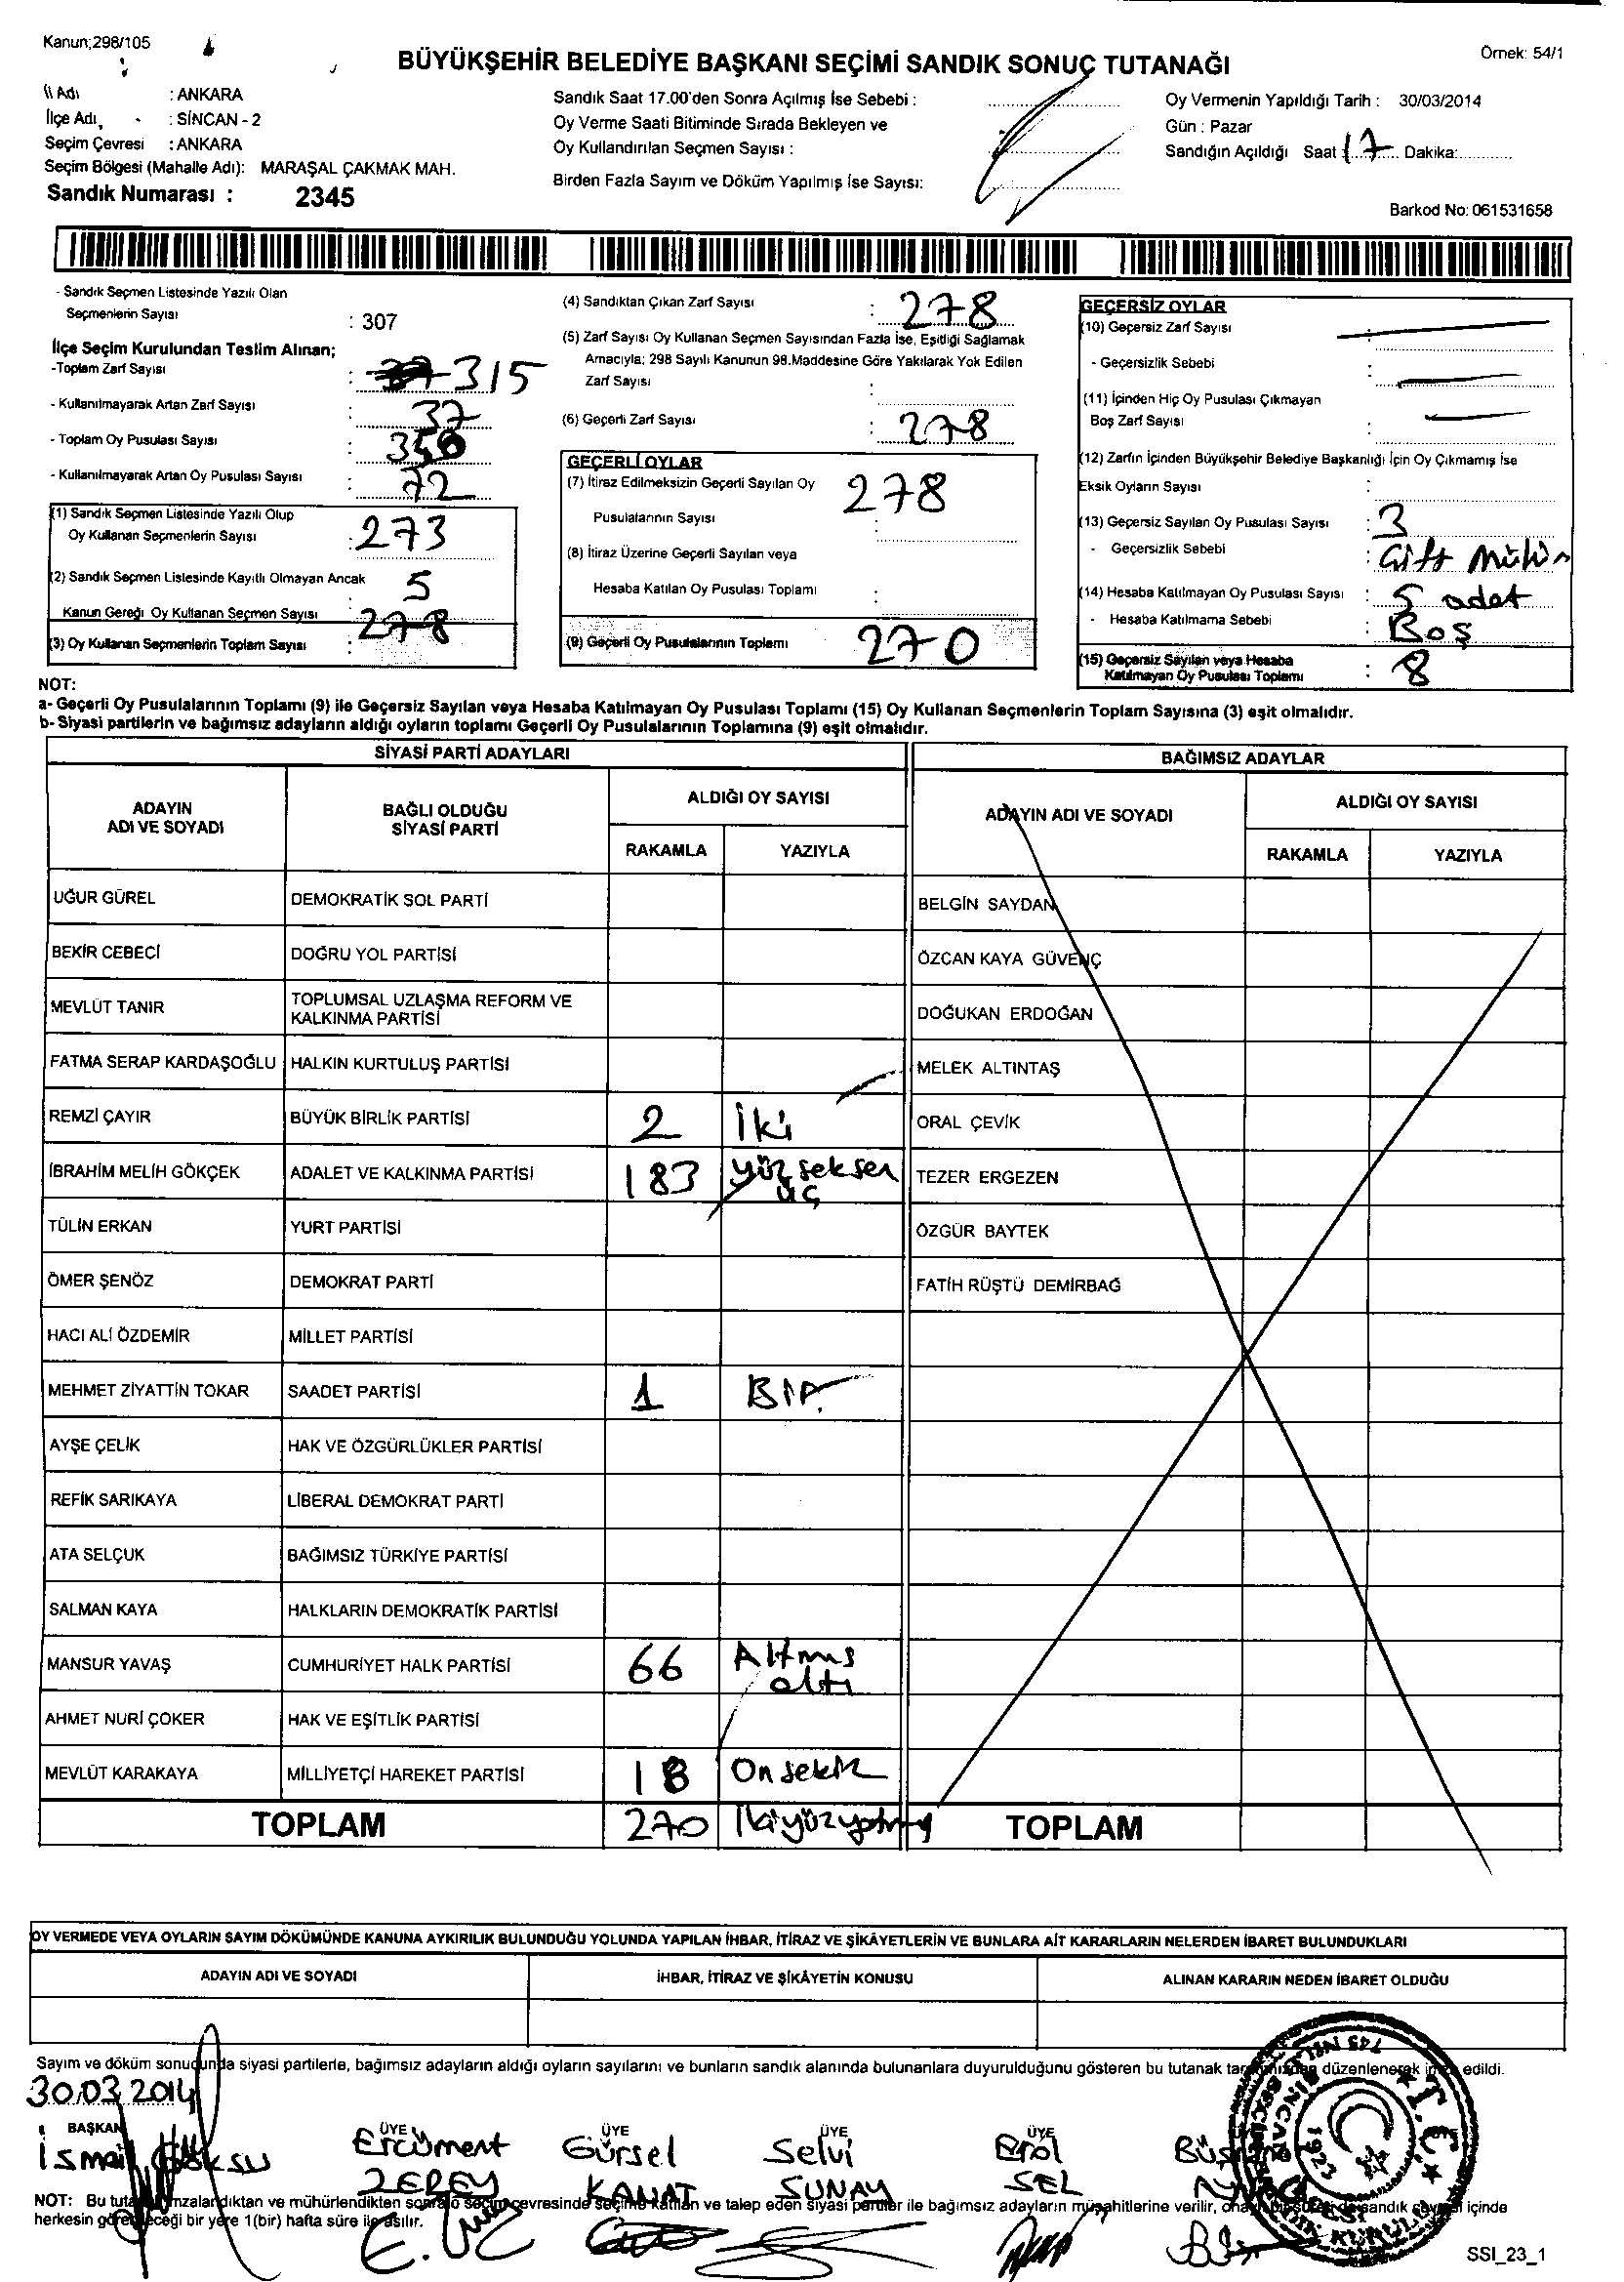 Kanun;298/105
Örnek: 54/1
BÜYÜKŞEHİR BELEDİYE BAŞKANI SEÇİMİ SANDIK SONUÇ TUTANAĞI
İl Adı : ANKARA
İlçe Adı : SİNCAN - 2
Seçim Çevresi : ANKARA
Seçim Bölgesi (Mahalle Adı): MARAŞAL ÇAKMAK MAH.
Sandık Numarası : 2345
Sandık Saat 17.00'den Sonra Açılmış İse Sebebi :
Oy Verme Saati Bitiminde Sırada Bekleyen ve
Oy Kullandırılan Seçmen Sayısı :
Birden Fazla Sayım ve Döküm Yapılmış İse Sayısı:
Oy Vermenin Yapıldığı Tarih : 30/03/2014
Gün : Pazar
Sandığın Açıldığı Saat : 17 Dakika:
Barkod No: 061531658
- Sandık Seçmen Listesinde Yazılı Olan
Seçmenlerin Sayısı : 307
İlçe Seçim Kurulundan Teslim Alınan;
-Toplam Zarf Sayısı : 315
- Kullanılmayarak Artan Zarf Sayısı : 37
- Toplam Oy Pusulası Sayısı : 350
- Kullanılmayarak Artan Oy Pusulası Sayısı : 72
(1) Sandık Seçmen Listesinde Yazılı Olup
Oy Kullanan Seçmenlerin Sayısı : 273
(2) Sandık Seçmen Listesinde Kayıtlı Olmayan Ancak
Kanun Gereği Oy Kullanan Seçmen Sayısı : 5
(3) Oy Kullanan Seçmenlerin Toplam Sayısı : 278
(4) Sandıktan Çıkan Zarf Sayısı : 278
(5) Zarf Sayısı Oy Kullanan Seçmen Sayısından Fazla İse, Eşitliği Sağlamak
Amacıyla; 298 Sayılı Kanunun 98.Maddesine Göre Yakılarak Yok Edilen
Zarf Sayısı :
(6) Geçerli Zarf Sayısı : 278
GEÇERLİ OYLAR
(7) İtiraz Edilmeksizin Geçerli Sayılan Oy
Pusulalarının Sayısı : 278
(8) İtiraz Üzerine Geçerli Sayılan veya
Hesaba Katılan Oy Pusulası Toplamı :
(9) Geçerli Oy Pusulalarının Toplamı 270
GEÇERSİZ OYLAR
(10) Geçersiz Zarf Sayısı :
- Geçersizlik Sebebi :
(11) İçinden Hiç Oy Pusulası Çıkmayan
Boş Zarf Sayısı :
(12) Zarfın İçinden Büyükşehir Belediye Başkanlığı İçin Oy Çıkmamış İse
Eksik Oyların Sayısı :
(13) Geçersiz Sayılan Oy Pusulası Sayısı : 3
- Geçersizlik Sebebi : Çift Mühür
(14) Hesaba Katılmayan Oy Pusulası Sayısı : 5 adet
- Hesaba Katılmama Sebebi : Boş
(15) Geçersiz Sayılan veya Hesaba
Katılmayan Oy Pusulası Toplamı : 8
NOT:
a- Geçerli Oy Pusulalarının Toplamı (9) ile Geçersiz Sayılan veya Hesaba Katılmayan Oy Pusulası Toplamı (15) Oy Kullanan Seçmenlerin Toplam Sayısına (3) eşit olmalıdır.
b- Siyasi partilerin ve bağımsız adayların aldığı oyların toplamı Geçerli Oy Pusulalarının Toplamına (9) eşit olmalıdır.
SİYASİ PARTİ ADAYLARI
ADAYIN ADI VE SOYADI
BAĞLI OLDUĞU SİYASİ PARTİ
ALDIĞI OY SAYISI
RAKAMLA YAZIYLA
UĞUR GÜREL DEMOKRATİK SOL PARTİ
BEKİR CEBECİ DOĞRU YOL PARTİSİ
MEVLÜT TANIR TOPLUMSAL UZLAŞMA REFORM VE KALKINMA PARTİSİ
FATMA SERAP KARDAŞOĞLU HALKIN KURTULUŞ PARTİSİ
REMZİ ÇAYIR BÜYÜK BİRLİK PARTİSİ 2 İki
İBRAHİM MELİH GÖKÇEK ADALET VE KALKINMA PARTİSİ 183 yüzseksen üç
TÜLİN ERKAN YURT PARTİSİ
ÖMER ŞENÖZ DEMOKRAT PARTİ
HACI ALİ ÖZDEMİR MİLLET PARTİSİ
MEHMET ZİYATTİN TOKAR SAADET PARTİSİ 1 Bir
AYŞE ÇELİK HAK VE ÖZGÜRLÜKLER PARTİSİ
REFİK SARIKAYA LİBERAL DEMOKRAT PARTİ
ATA SELÇUK BAĞIMSIZ TÜRKİYE PARTİSİ
SALMAN KAYA HALKLARIN DEMOKRATİK PARTİSİ
MANSUR YAVAŞ CUMHURİYET HALK PARTİSİ 66 Altmış altı
AHMET NURİ ÇOKER HAK VE EŞİTLİK PARTİSİ
MEVLÜT KARAKAYA MİLLİYETÇİ HAREKET PARTİSİ 18 Onsekiz
TOPLAM 270 İkiyüzyetmiş
BAĞIMSIZ ADAYLAR
ADAYIN ADI VE SOYADI
ALDIĞI OY SAYISI
RAKAMLA YAZIYLA
BELGİN SAYDAN
ÖZCAN KAYA GÜVENÇ
DOĞUKAN ERDOĞAN
MELEK ALTINTAŞ
ORAL ÇEVİK
TEZER ERGEZEN
ÖZGÜR BAYTEK
FATİH RÜŞTÜ DEMİRBAĞ
TOPLAM
OY VERMEDE VEYA OYLARIN SAYIM DÖKÜMÜNDE KANUNA AYKIRILIK BULUNDUĞU YOLUNDA YAPILAN İHBAR, İTİRAZ VE ŞİKÂYETLERİN VE BUNLARA AİT KARARLARIN NELERDEN İBARET BULUNDUKLARI
ADAYIN ADI VE SOYADI
İHBAR, İTİRAZ VE ŞİKÂYETİN KONUSU
ALINAN KARARIN NEDEN İBARET OLDUĞU
Sayım ve döküm sonucunda siyasi partilerle, bağımsız adayların aldığı oyların sayılarını ve bunların sandık alanında bulunanlara duyurulduğunu gösteren bu tutanak tarafımızdan düzenlenerek imza edildi.
30.03.2014
BAŞKAN ÜYE ÜYE ÜYE ÜYE
İsmail Göksu
Ercüment ZEREY
Gürsel KANAT
Selvi SUNAY
Erol SEL
T.C.
SİNCAN
1923
NOT: Bu tutanak imzalandıktan ve mühürlendikten sonra o seçim çevresinde seçime katılan ve talep eden siyasi partiler ile bağımsız adayların müşahitlerine verilir, sandık çevresi içinde
herkesin görebileceği bir yere 1(bir) hafta süre ile asılır.
SSI_23_1